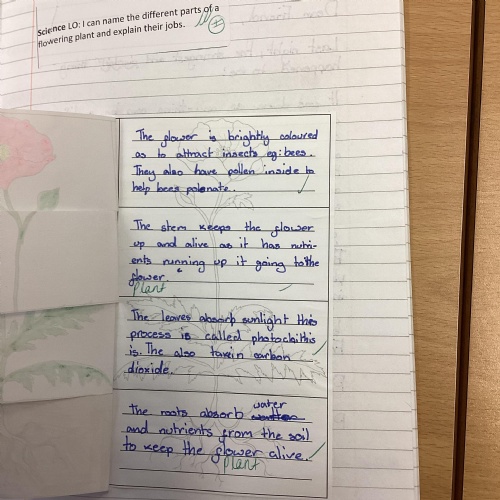 Science LO: I can name the different parts of a
flowering plant and explain their jobs.
The flower is brightly coloured
as to attract insects eg: bees.
They also have pollen inside to
help bees polonate.
The stem keeps the flower
up and alive as it has nutri-
ents running up it going to the
flower.
plant
The leaves absorb sunlight this
process is called photoclaithis
is. The also takein carbon
dioxide.
The roots absorb water
and nutrients from the soil
to keep the flower alive.
plant